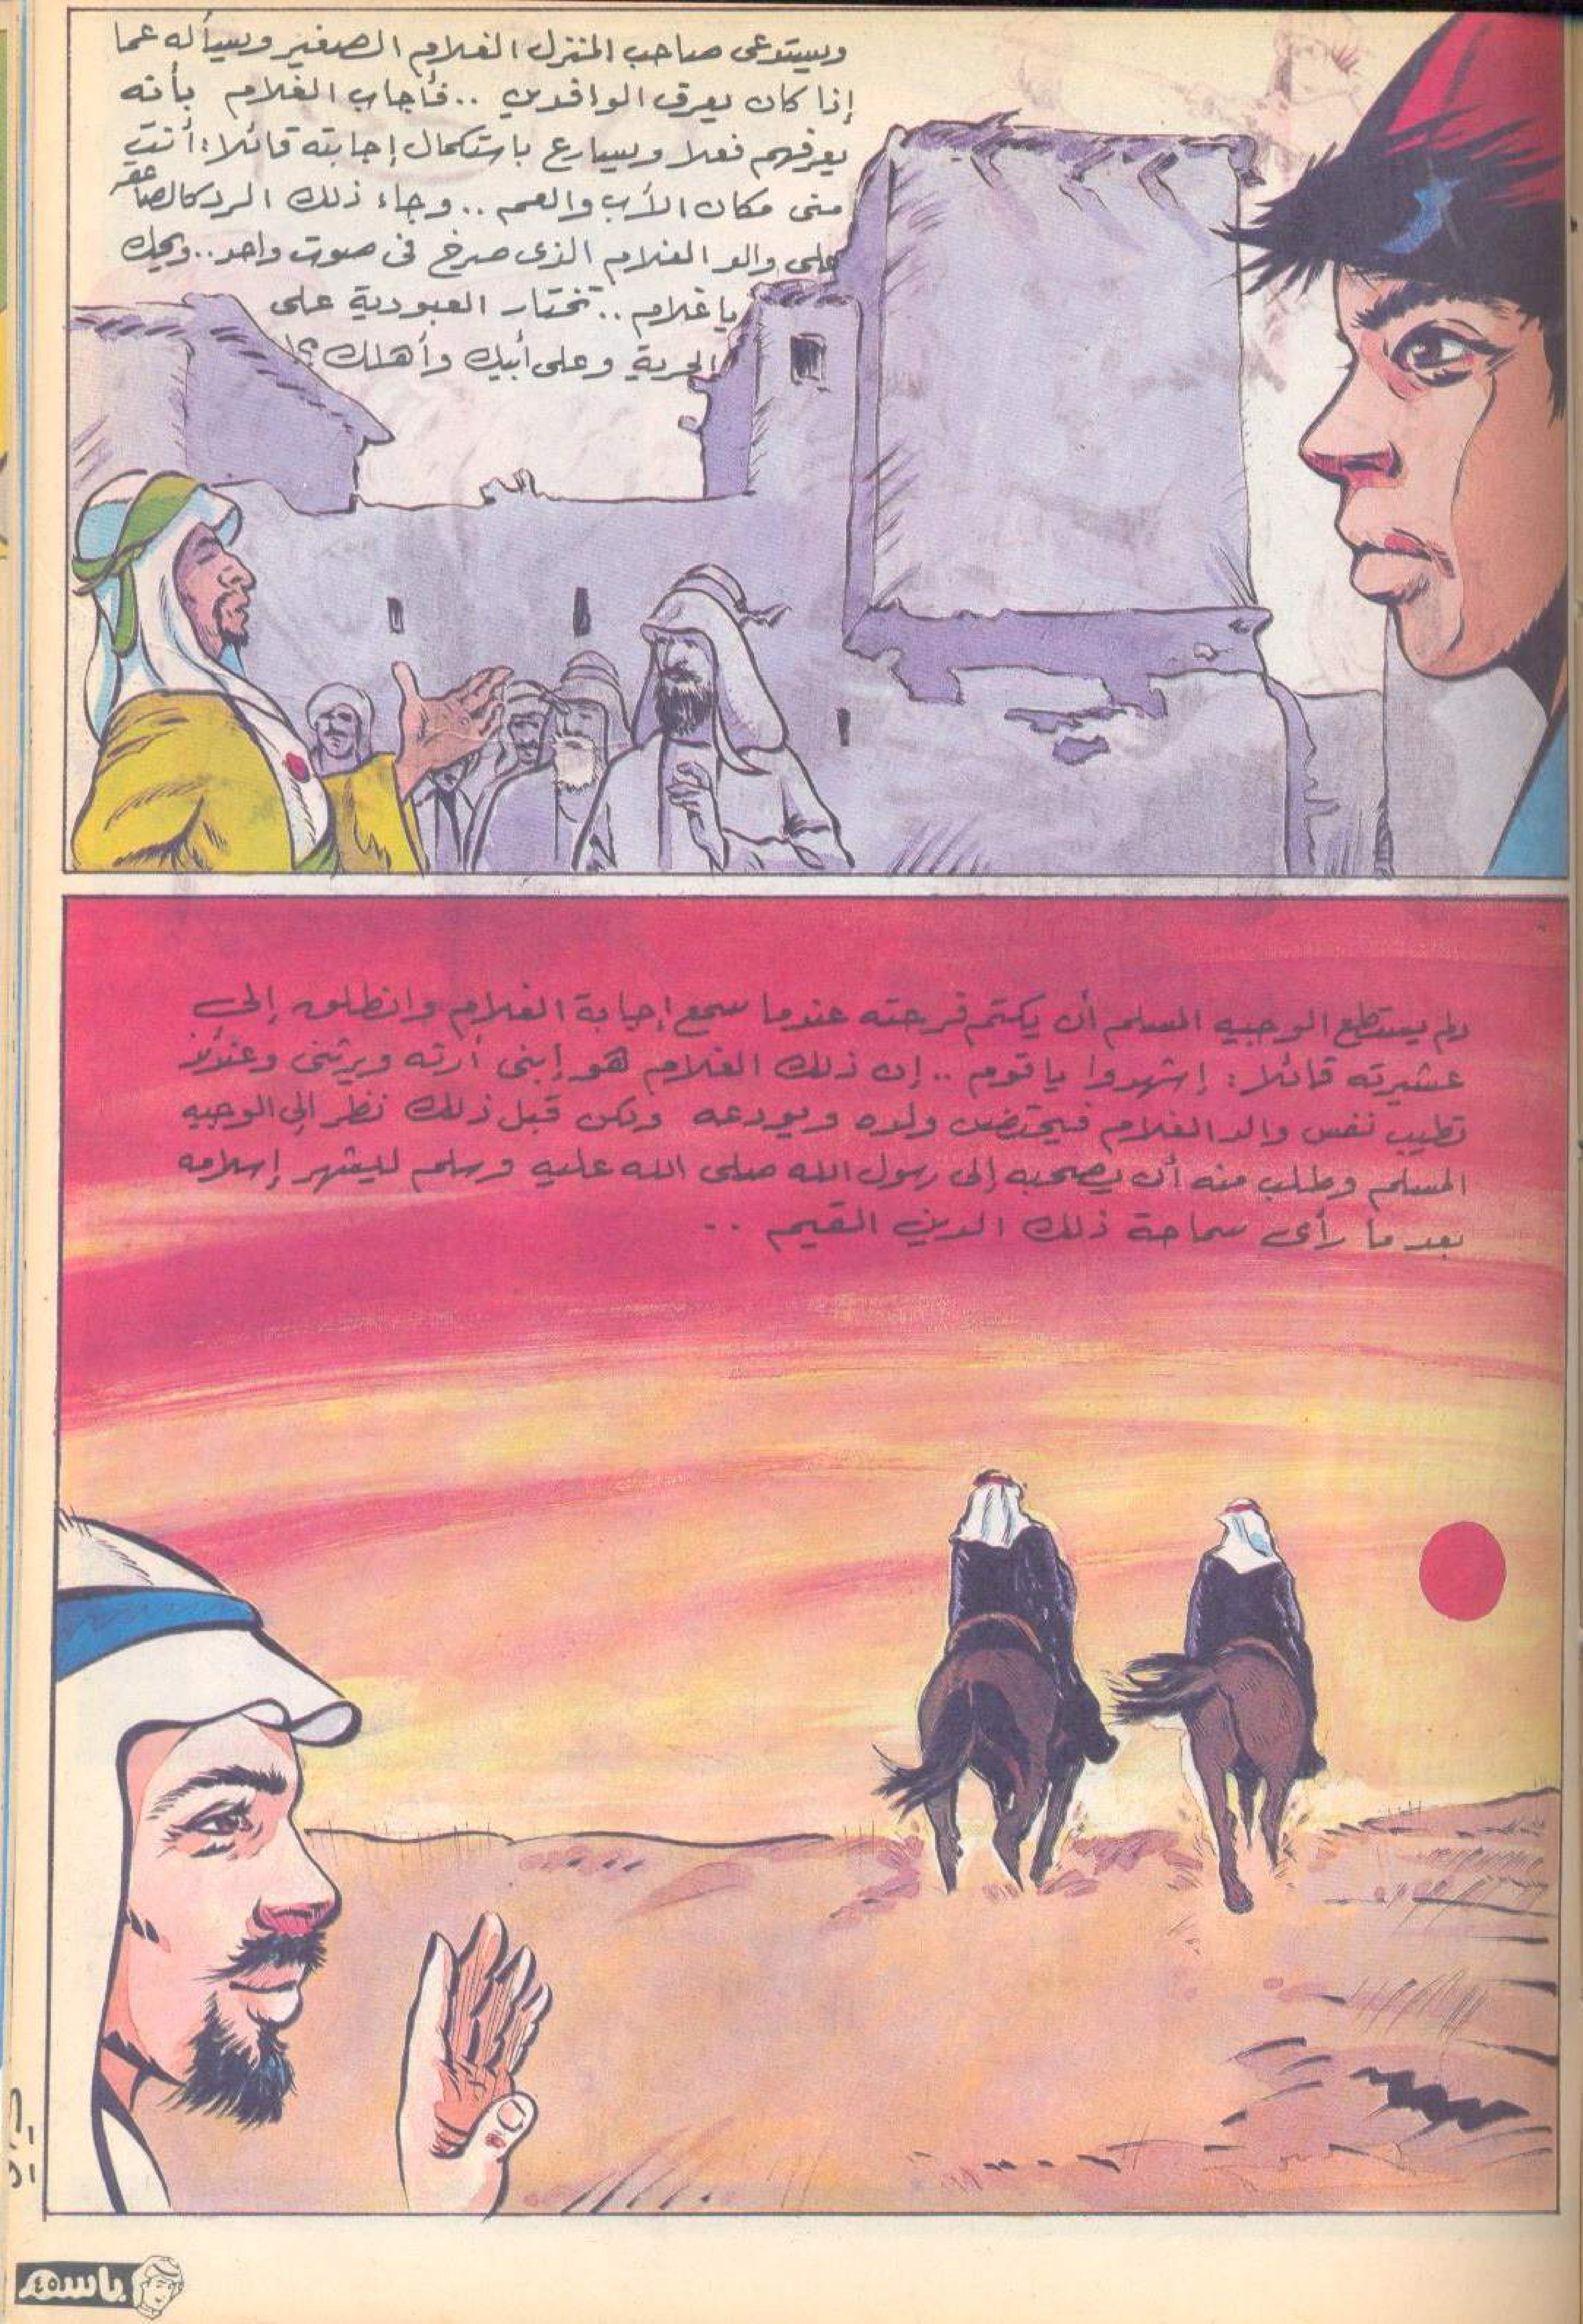 ويستدعى صاحب المنزل الغلام الصغير ويسأله عما
إذا كان يعرف الوافدين .. فأجاب الغلام بأنه
يعرفهم فعلا ويسارع باستكمال إجابته قائلا : أنت
منى مكان الأب والعم .. وجاء ذلك الرد كالصاعقة
على والد الغلام الذى صرخ فى صوت واحد .. ويحك
يا غلام .. تختار العبودية على
الحرية وعلى أبيك وأهلك ؟!
ولم يستطع الوجيه المسلم أن يكتم فرحته عندما سمع إجابة الغلام وانطلق إلى
عشيرته قائلا : إشهدوا يا قوم .. إن ذلك الغلام هو إبنى أرثه ويرثنى وعندئذ
تطيب نفس والد الغلام فيحتضن ولده ويودعه ولكن قبل ذلك نظر إلى الوجيه
المسلم وطلب منه أن يصحبه إلى رسول الله صلى الله عليه وسلم ليشهر إسلامه
بعد ما رأى سماحة ذلك الدين القيم ..
باسم
٤٥